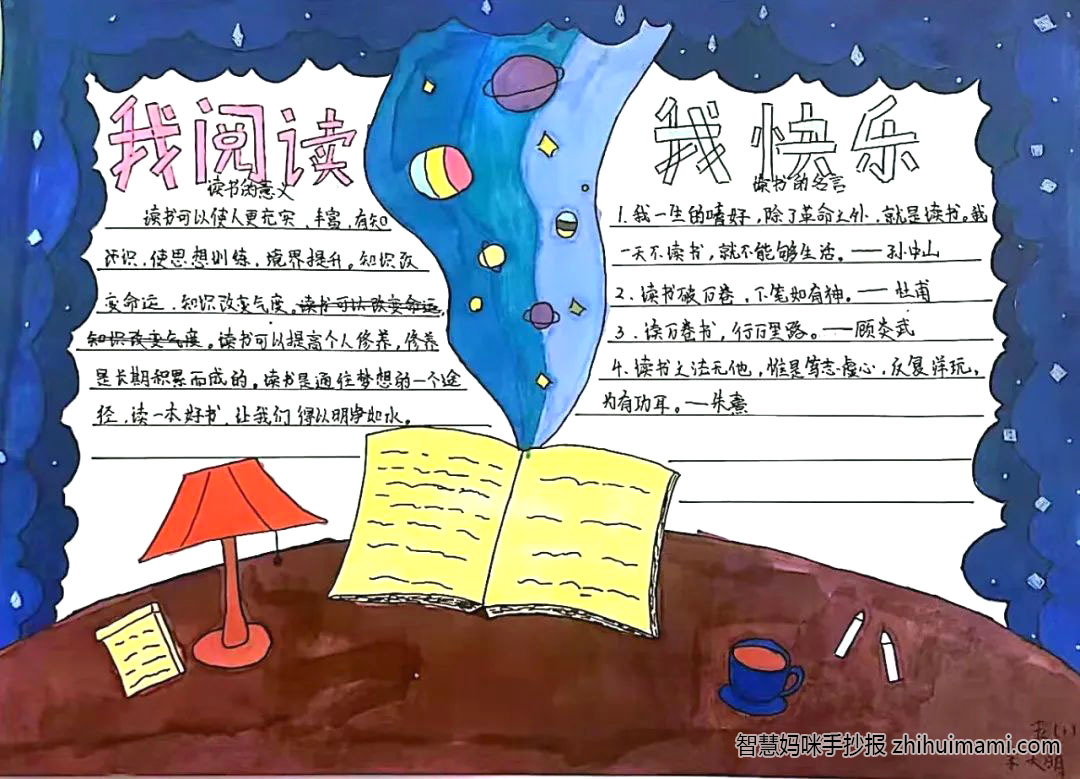 我阅读
读书的意义
读书可以使人更充实、丰富、有知
识，使思想训练，境界提升。知识改
变命运，知识改变气度。读书可以改变命运，
知识改变气度。读书可以提高个人修养，修养
是长期积累而成的。读书是通往梦想的一个途
径，读一本好书，让我们得以明净如水。
我快乐
读书的名言
1.我一生的嗜好，除了革命之外，就是读书。我
一天不读书，就不能够生活。——孙中山
2、读书破万卷，下笔如有神。——杜甫
3、读万卷书，行万里路。——顾炎武
4、读书之法无他，惟是笃志虚心，反复详玩，
为有功耳。——朱熹
智慧妈咪手抄报 zhihuimami.com